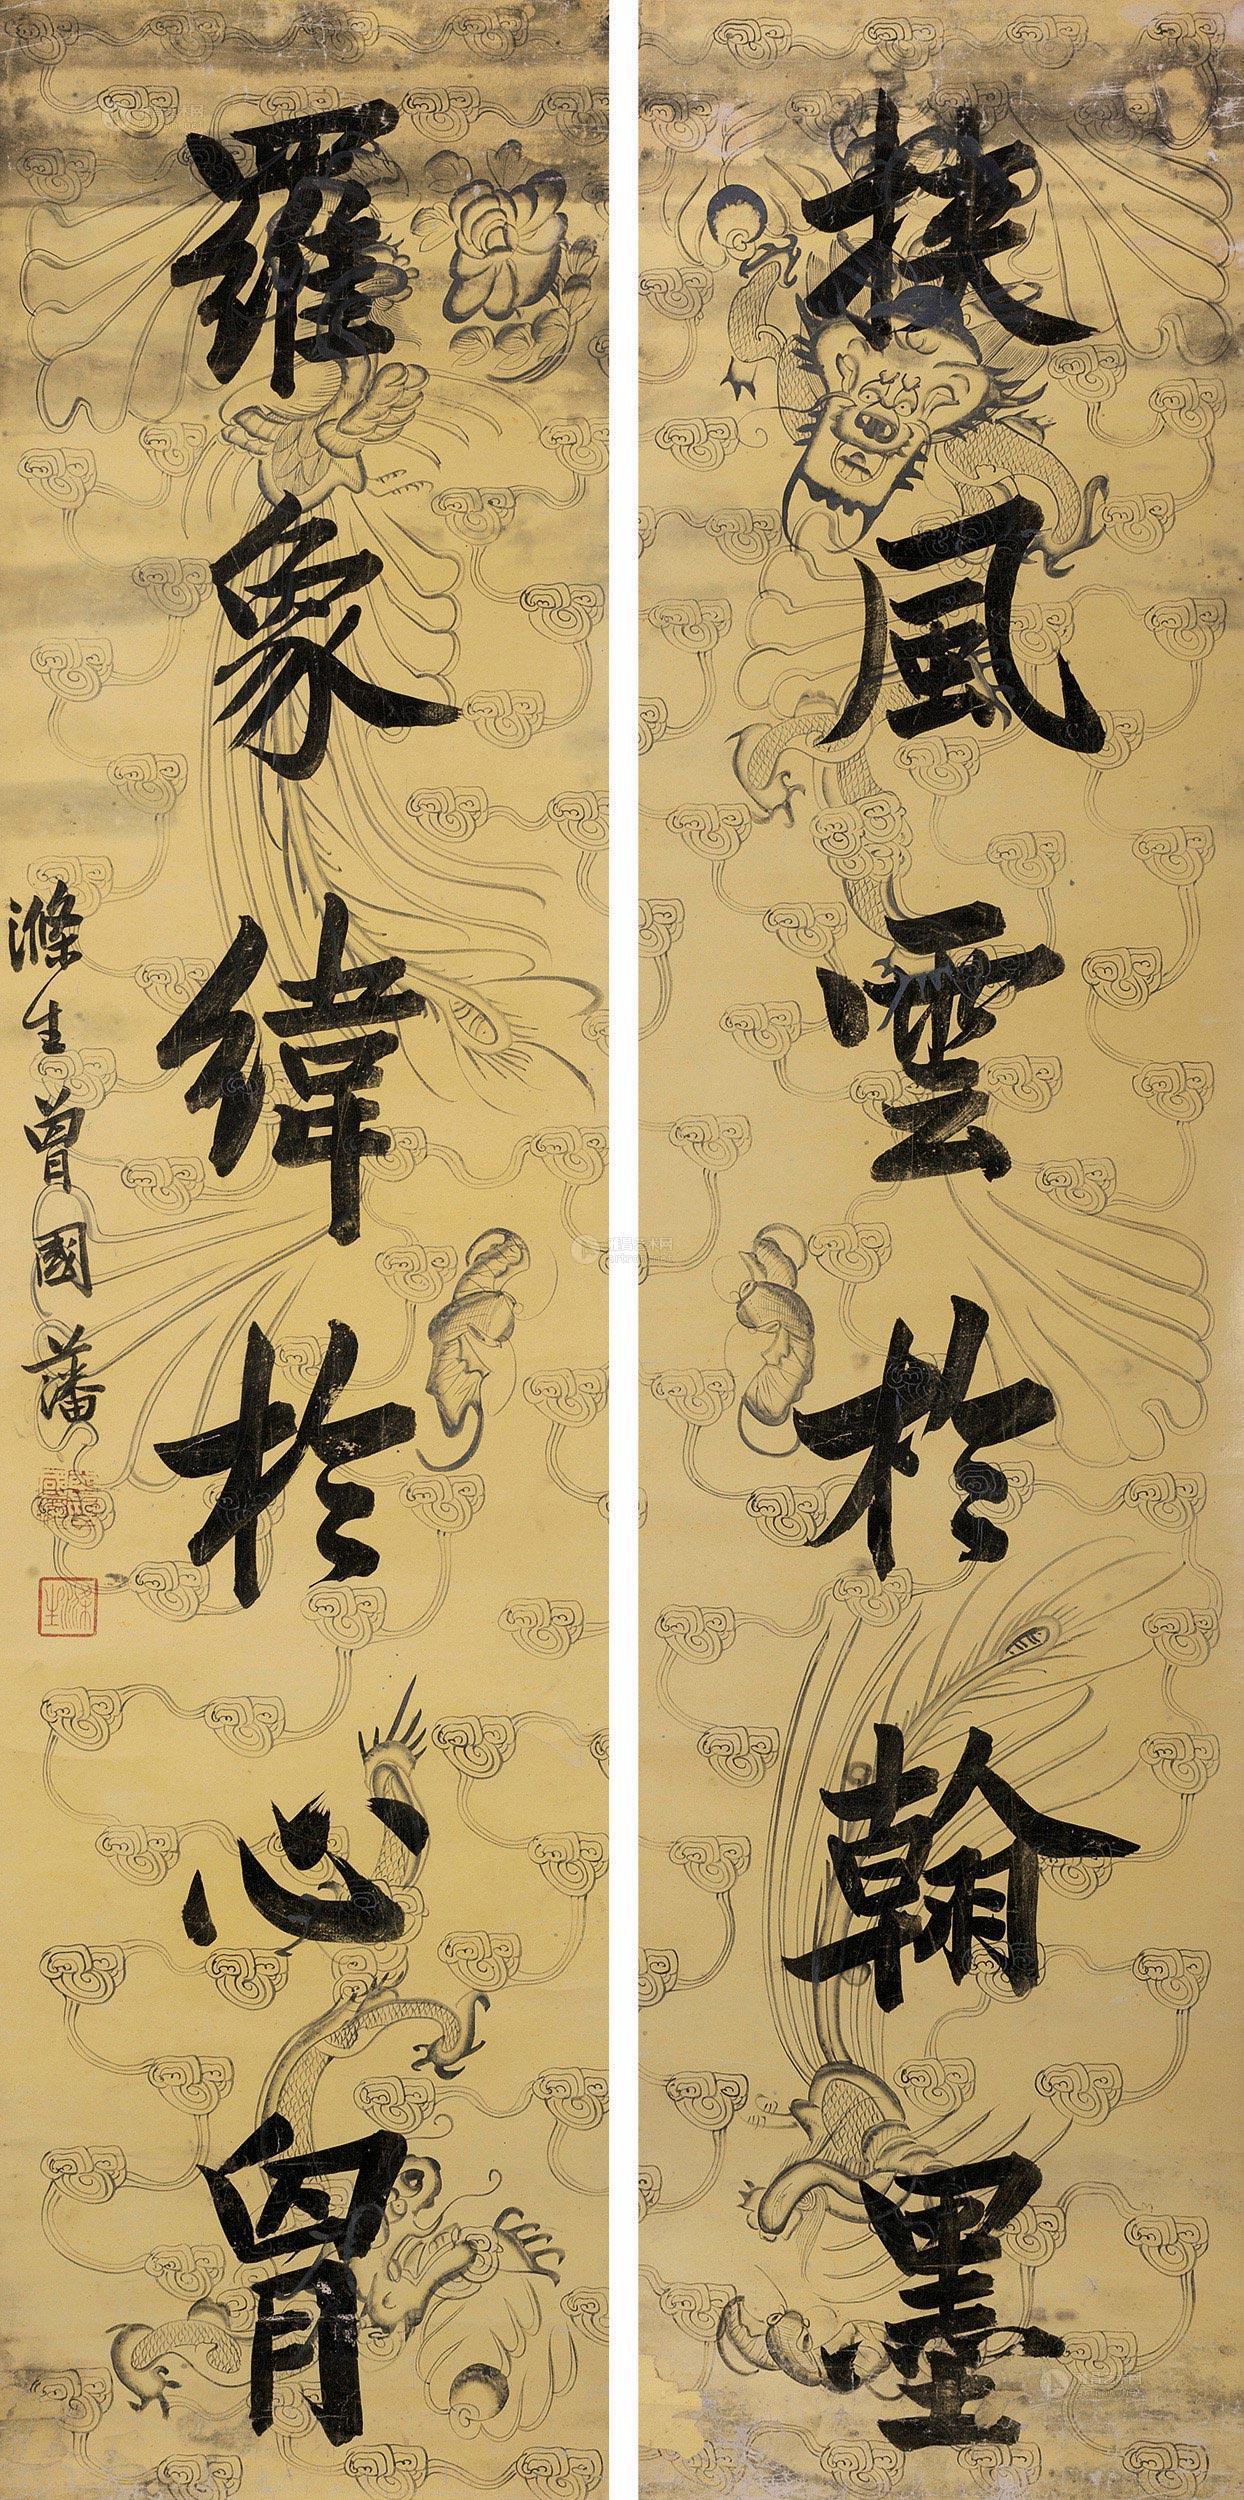 挟風雲於翰墨
羅象緯於心胷
滌生曾國藩